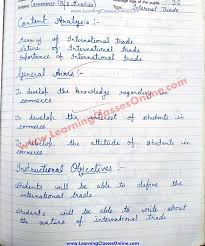 Subject Commerce (B/S Studies)
Age of the pupils 16
Topic International Trade
Content Analysis :-
Meaning of International trade
Nature of International trade
Importance of International trade
General Aims :-
To develop the knowledge regarding to
commerce
To develop the interest of students in
commerce
To develop the attitude of students in
commerce
Instructional Objectives :-
Students will be able to define the
international trade
Students will be able to write about
the nature of international trade
www.LearningClassesOnline.com
www.LearningClassesOnline.com